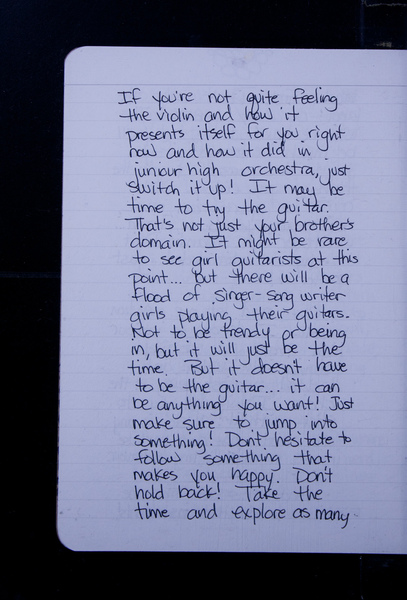 If you're not quite feeling
the violin and how it
presents itself for you right
now and how it did in
juniour high orchestra, just
switch it up! It may be
time to try the guitar.
That's not just your brother's
domain. It might be rare
to see girl guitarists at this
point... but there will be a
flood of singer-song writer
girls playing their guitars.
Not to be trendy or being
in, but it will just be the
time. But it doesn't have
to be the guitar... it can
be anything you want! Just
make sure to jump into
something! Don't hesitate to
follow something that
makes you happy. Don't
hold back! Take the
time and explore as many